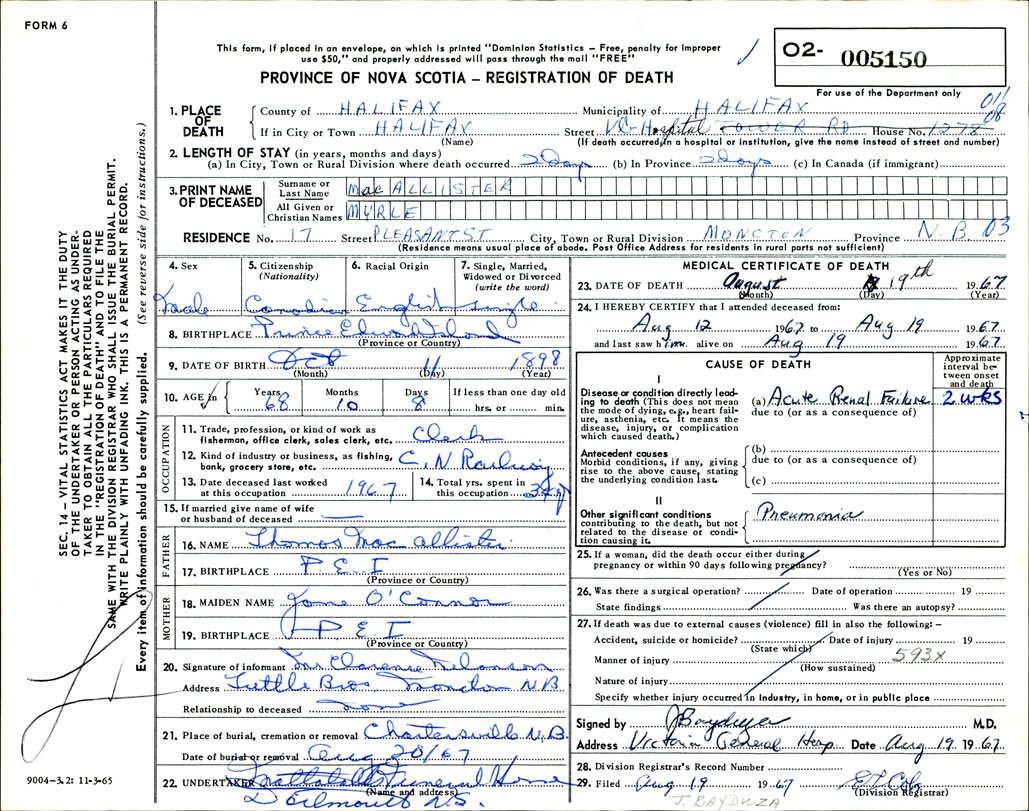 FORM 6
This form, if placed in an envelope, on which is printed "Dominion Statistics – Free, penalty for improper
use $50," and properly addressed will pass through the mail "FREE"
PROVINCE OF NOVA SCOTIA – REGISTRATION OF DEATH
O2- 005150
For use of the Department only
1. PLACE OF DEATH
County of HALIFAX Municipality of HALIFAX
If in City or Town HALIFAX Street VG Hospital TOWER RD House No. 1278
(Name) (If death occurred in a hospital or institution, give the name instead of street and number)
2. LENGTH OF STAY (in years, months and days)
(a) In City, Town or Rural Division where death occurred 2 Days (b) In Province 2 Days (c) In Canada (if immigrant)
3. PRINT NAME OF DECEASED
Surname or Last Name MacALLISTER
All Given or Christian Names MYRLE
RESIDENCE No. 17 Street PLEASANT ST City, Town or Rural Division MONCTON Province N.B 03
(Residence means usual place of abode. Post Office Address for residents in rural parts not sufficient)
4. Sex Male
5. Citizenship (Nationality) Canadian
6. Racial Origin English
7. Single, Married, Widowed or Divorced (write the word) Single
8. BIRTHPLACE Prince Edward Island
(Province or Country)
9. DATE OF BIRTH Oct 11 1898
(Month) (Day) (Year)
10. AGE in Years 68 Months 10 Days 8 If less than one day old hrs. or min.
OCCUPATION
11. Trade, profession, or kind of work as
fisherman, office clerk, sales clerk, etc. Clerk
12. Kind of industry or business, as fishing,
bank, grocery store, etc. C.N Railway
13. Date deceased last worked
at this occupation 1967
14. Total yrs. spent in
this occupation
15. If married give name of wife
or husband of deceased
FATHER
16. NAME Thomas Mac Allister
17. BIRTHPLACE P.E.I
(Province or Country)
MOTHER
18. MAIDEN NAME Jane O'Connor
19. BIRTHPLACE P E I
(Province or Country)
20. Signature of informant Mr Clarence
Address Tuttle Bros. Moncton N.B
Relationship to deceased none
21. Place of burial, cremation or removal Chartersville N.B.
Date of burial or removal Aug 20/67
22. UNDERTAKER Mattatall's Funeral Home
(Name and address)
Dartmouth N.S.
MEDICAL CERTIFICATE OF DEATH
23. DATE OF DEATH August 19th 1967
(Month) (Day) (Year)
24. I HEREBY CERTIFY that I attended deceased from:
Aug 12 1967 to Aug 19 1967
and last saw him alive on Aug 19 1967.
CAUSE OF DEATH
Approximate interval between onset and death
I
Disease or condition directly leading
to death (This does not mean
the mode of dying, e.g., heart failure,
asthenia, etc. It means the
disease, injury, or complication
which caused death.)
(a) Acute Renal Failure 2 wks
due to (or as a consequence of)
Antecedent causes
Morbid conditions, if any, giving
rise to the above cause, stating
the underlying condition last.
(b)
due to (or as a consequence of)
(c)
II
Other significant conditions
contributing to the death, but not
related to the disease or condition
causing it.
Pneumonia
25. If a woman, did the death occur either during
pregnancy or within 90 days following pregnancy?
(Yes or No)
26. Was there a surgical operation? Date of operation 19
State findings Was there an autopsy?
27. If death was due to external causes (violence) fill in also the following: –
Accident, suicide or homicide? Date of injury 19
(State which)
Manner of injury 593X
(How sustained)
Nature of injury
Specify whether injury occurred in industry, in home, or in public place
Signed by J Bayduza M.D.
Address Victoria General Hosp Date Aug 19 1967
28. Division Registrar's Record Number
29. Filed Aug 19 1967
(Division Registrar)
J. BAYDUZA
SEC. 14 – VITAL STATISTICS ACT MAKES IT THE DUTY
OF THE UNDERTAKER OR PERSON ACTING AS UNDER-
TAKER TO OBTAIN ALL THE PARTICULARS REQUIRED
IN THE "REGISTRATION OF DEATH" AND TO FILE THE
SAME WITH THE DIVISION REGISTRAR WHO SHALL ISSUE THE BURIAL PERMIT.
WRITE PLAINLY WITH UNFADING INK. THIS IS A PERMANENT RECORD.
Every item of information should be carefully supplied. (See reverse side for instructions.)
9004-3.2: 11-3-65